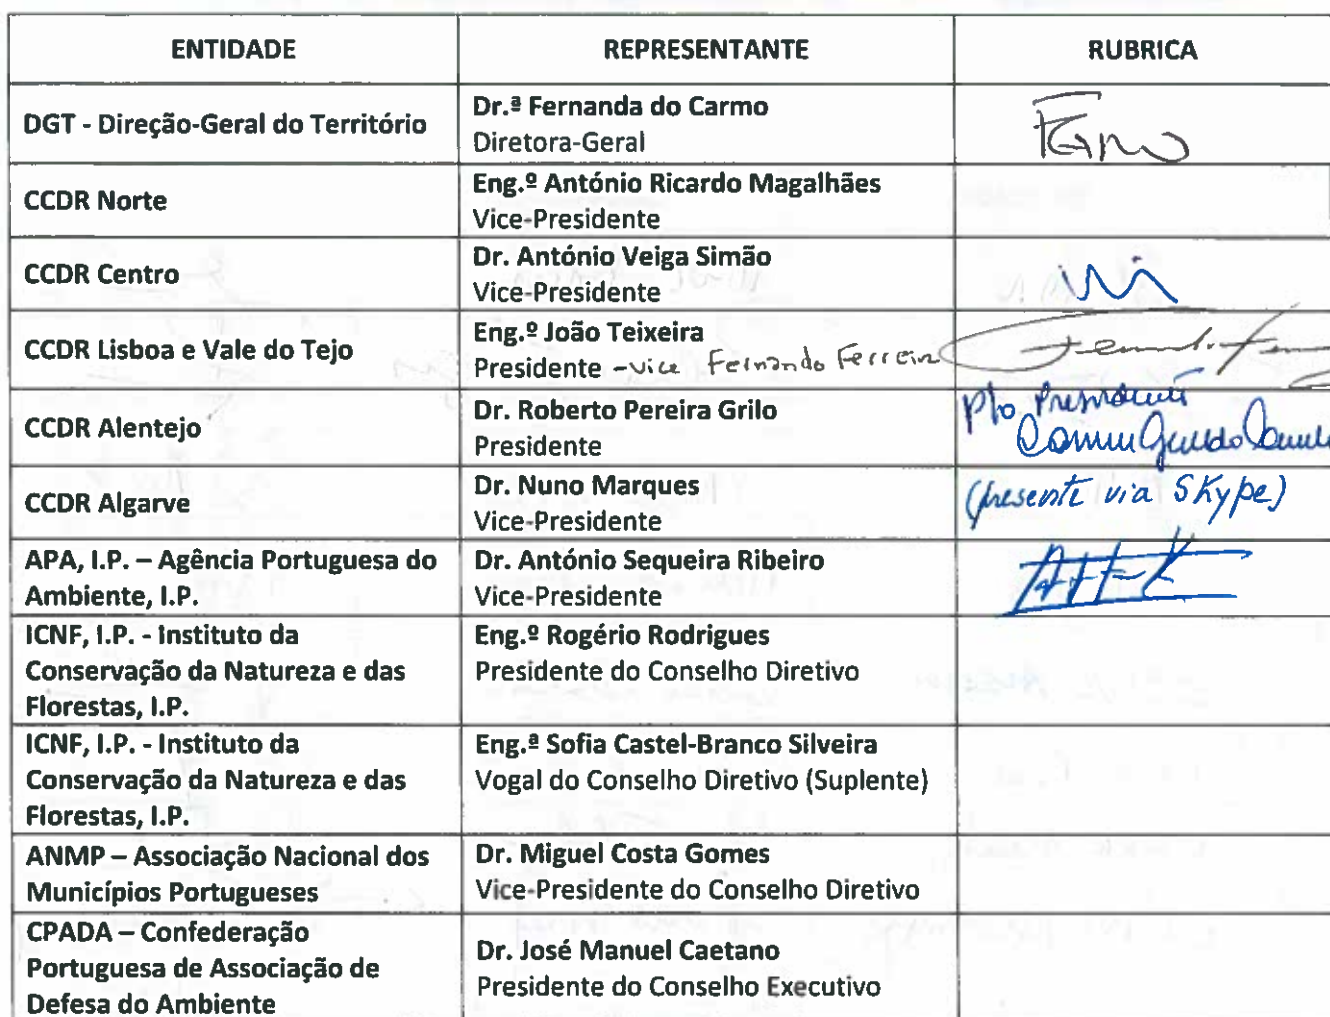 ENTIDADE
REPRESENTANTE
RUBRICA
DGT - Direção-Geral do Território
Dr.ª Fernanda do Carmo
Diretora-Geral
CCDR Norte
Eng.º António Ricardo Magalhães
Vice-Presidente
CCDR Centro
Dr. António Veiga Simão
Vice-Presidente
CCDR Lisboa e Vale do Tejo
Eng.º João Teixeira
Presidente - vice Fernando Ferreira
CCDR Alentejo
Dr. Roberto Pereira Grilo
Presidente
P/o Presidente
CCDR Algarve
Dr. Nuno Marques
Vice-Presidente
(presente via Skype)
APA, I.P. – Agência Portuguesa do
Ambiente, I.P.
Dr. António Sequeira Ribeiro
Vice-Presidente
ICNF, I.P. - Instituto da
Conservação da Natureza e das
Florestas, I.P.
Eng.º Rogério Rodrigues
Presidente do Conselho Diretivo
ICNF, I.P. - Instituto da
Conservação da Natureza e das
Florestas, I.P.
Eng.ª Sofia Castel-Branco Silveira
Vogal do Conselho Diretivo (Suplente)
ANMP – Associação Nacional dos
Municípios Portugueses
Dr. Miguel Costa Gomes
Vice-Presidente do Conselho Diretivo
CPADA – Confederação
Portuguesa de Associação de
Defesa do Ambiente
Dr. José Manuel Caetano
Presidente do Conselho Executivo